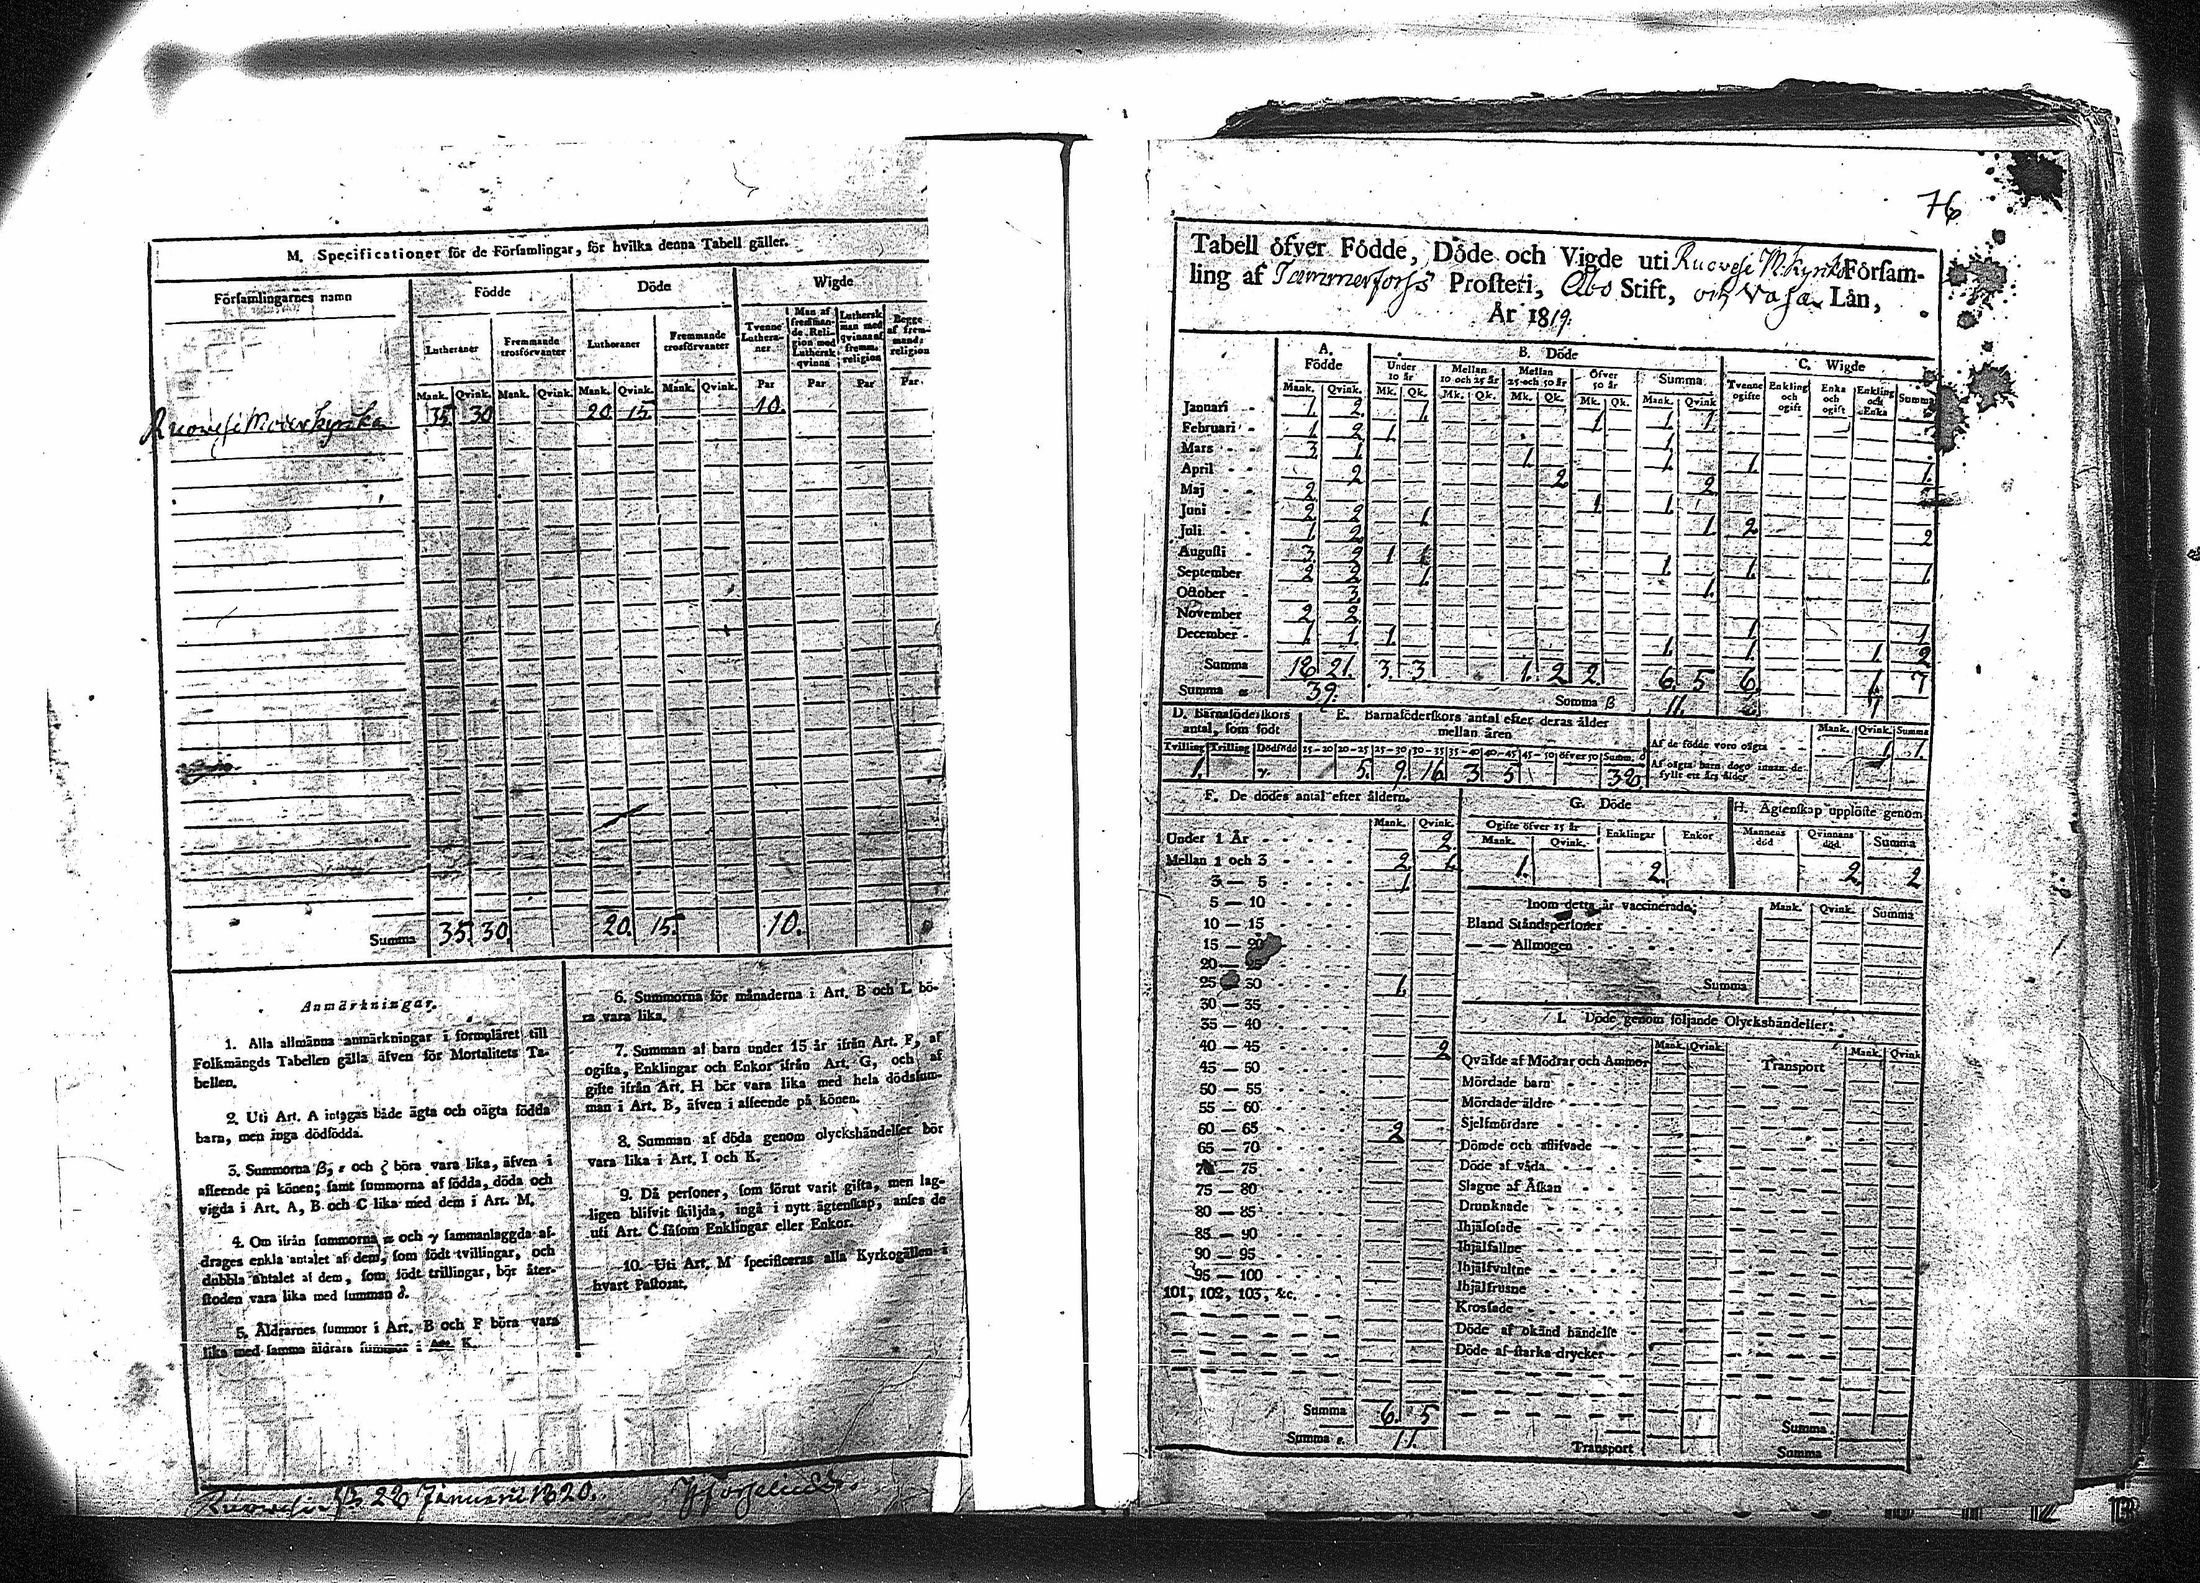 M. Specificationer för de Församlingar, för hvilka denna Tabell gäller.
Församlingarnes namn Födde Döde Wigde
Lutheraner Fremmande trosförvanter Lutheraner Fremmande trosförvanter Tvenne Lutheraner Man af fremmande Religion med Luthersk qvinna Luthersk man med qvinna af fremm. religion Begge af fremmande religion
Mank. Qvink. Mank. Qvink. Mank. Qvink. Mank. Qvink. Par Par Par Par
Ruovesi Moderkyrka 35. 30 20. 15. 10.
Summa 35. 30. 20. 15. 10.
Anmärkningar.
1. Alla allmänna anmärkningar i formuläret till
Folkmängds Tabellen gälla äfven för Mortalitets Ta-
bellen.
2. Uti Art. A intagas både ägta och oägta födda
barn, men inga dödfödda.
3. Summorna β, ε och ζ böra vara lika, äfven i
afseende på könen; samt summorna af födda, döda och
vigda i Art. A, B och C lika med dem i Art. M.
4. Om ifrån summorna α och γ sammanlaggda af-
drages enkla antalet af dem, som födt tvillingar, och
dubbla antalet af dem, som födt trillingar, bör åter-
stoden vara lika med summan δ.
5. Åldrarnes summor i Art. B och F böra vara
lika med samma åldrars summor i Art. K.
6. Summorna för månaderna i Art. B och L bö-
ra vara lika.
7. Summan af barn under 15 år ifrån Art. F, af
ogifta, Enklingar och Enkor ifrån Art. G, och af
gifte ifrån Art. H bör vara lika med hela dödssum-
man i Art. B, äfven i afseende på könen.
8. Summan af döda genom olyckshändelser bör
vara lika i Art. I och K.
9. Då personer, som förut varit gifta, men lag-
ligen blifvit skiljda, ingå i nytt ägtenskap, anses de
uti Art. C såsom Enklingar eller Enkor.
10. Uti Art. M specificeras alla Kyrkogällen i
hvart Pastorat.
28 Januarii 1820.
76
Tabell öfver Födde, Döde och Vigde uti Ruovesi M. Kyrko Försam-
ling af Tammerfors Prosteri, Åbo Stift, och Vasa Län,
År 1819.
A. Födde B. Döde C. Wigde
Under 10 år Mellan 10 och 25 år Mellan 25 och 50 år Öfver 50 år Summa Tvenne ogifte Enkling och ogift Enka och ogift Enkling och Enka Summa
Mank. Qvink. Mk. Qk. Mk. Qk. Mk. Qk. Mk. Qk. Mank. Qvink
Januari 1. 2. 1. 1
Februari 1. 2. 1. 1 1
Mars 3 1. 1 1
April 2 2 1 1. 1.
Maj 2. 2
Juni 2 2 1. 1 1
Juli 1 2 1 2 2
Augusti 3 2 1 1
September 2 2 1. 1 1. 1.
October 3. 1.
November 2 2
December 1. 1. 1. 1 1
Summa 18 21. 3. 3 1. 2 2 6. 5 6 1. 7
Summa α 39. Summa β 11. 7
D. Barnaföderskors antal, som födt E. Barnaföderskors antal efter deras ålder mellan åren Mank. Qvink. Summa
Tvilling Trilling Dödfödd 15—20 20—25 25—30 30—35 35—40 40—45 45—50 öfver 50 Summ. δ Af de födde voro oägta 1 1.
1. γ. 5. 9. 16 3 5 38. Af oägta barn dogo innan de fyllt ett års ålder
F. De dödes antal efter åldern. G. Döde H. Ägtenskap upplöste genom
Mank. Qvink. Ogifte öfver 15 år Enklingar Enkor Mannens död Qvinnans död Summa
Under 1 År 2 Mank. Qvink.
Mellan 1 och 3 2 1. 1. 2. 2. 2
3 — 5 1.
5 — 10 Inom detta år vaccinerade; Mank. Qvink. Summa
10 — 15 Bland Ståndspersoner
15 — 20 — — Allmogen
20 — 25
25 — 30 1. Summa
30 — 35
35 — 40 I. Döde genom följande Olyckshändelser:
40 — 45 2 Mank. Qvink. Mank. Qvink
45 — 50 Qväfde af Mödrar och Ammor Transport
50 — 55 Mördade barn
55 — 60 Mördade äldre
60 — 65 2 Sjelfmördare
65 — 70 Dömde och aflifvade
70 — 75 Döde af våda
75 — 80 Slagne af Åskan
80 — 85 Drunknade
85 — 90 Ihjälosade
90 — 95 Ihjälfallne
95 — 100 Ihjälsvultne
101, 102, 103, &c. Ihjälfrusne
Krossade
Döde af okänd händelse
Döde af starka drycker
Summa 6. 5 Summa
Summa ε. 11. Transport Summa